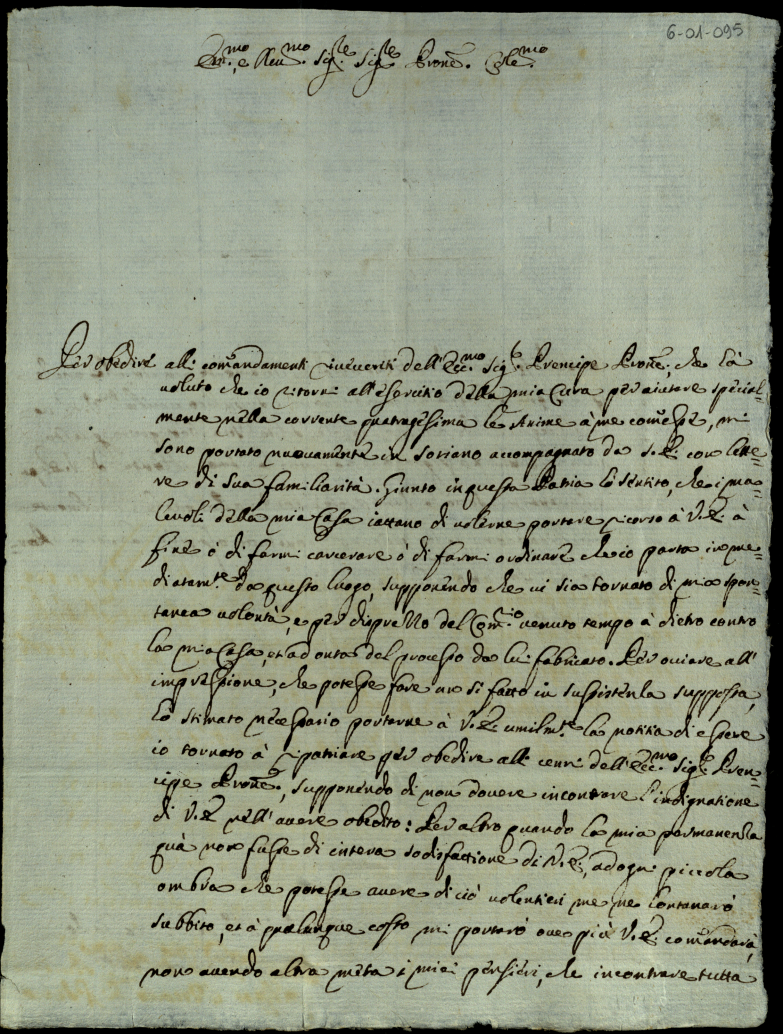 6-01-095
Em.mo, e Reu.mo Sig.re Sig.re Prone. Cole.mo
Per obedire alli comandamenti riueriti dell'Ecc.mo Sig.r Prencipe Prone, che hà
uoluto che io ritorni all'esercitio della mia Cura per aiutare special=
mente nella corrente quatragesima le Anime à me comesse, mi
sono portato nuouamente in Soriano accompagnato da S. E. con lette
re di sua familiarità. Giunto in questa Patria hò sentito, che i ma=
leuoli della mia Casa iattano di uolerne portare ricorso à V. E. à
fine ò di farmi carcerare ò di farmi ordinare che io parta imme=
diatam.te da questo luogo, supponendo che ui sia tornato di mia spon=
tanea uolontà, e per disprezzo del Com.rio uenuto tempo à dietro contro
la mia Casa, et ad onta del processo da lui fabricato. Per ouiare all'
impressione, che potesse fare un sì fatto insussistenza supposta,
hò stimato necessario portarne à V. E. umilm.te la notitia di essere
io tornato à ripatriare per obedire alli cenni dell'Ecc.mo Sig.r Pren=
cipe Prone, supponendo di non douere incontrare l'indignatione
di V. E. nell'auere obedito: Per altro quando la mia permanenza
quà non fusse di intera sodisfattione di V. E., ad ogni piccola
ombra che potesse auere di ciò uolentieri me ne lontanarò
subbito, et à qualunque costo mi portarò oue più V. E. comandarà,
non auendo altra meta i miei pensieri, che incontrare tutta